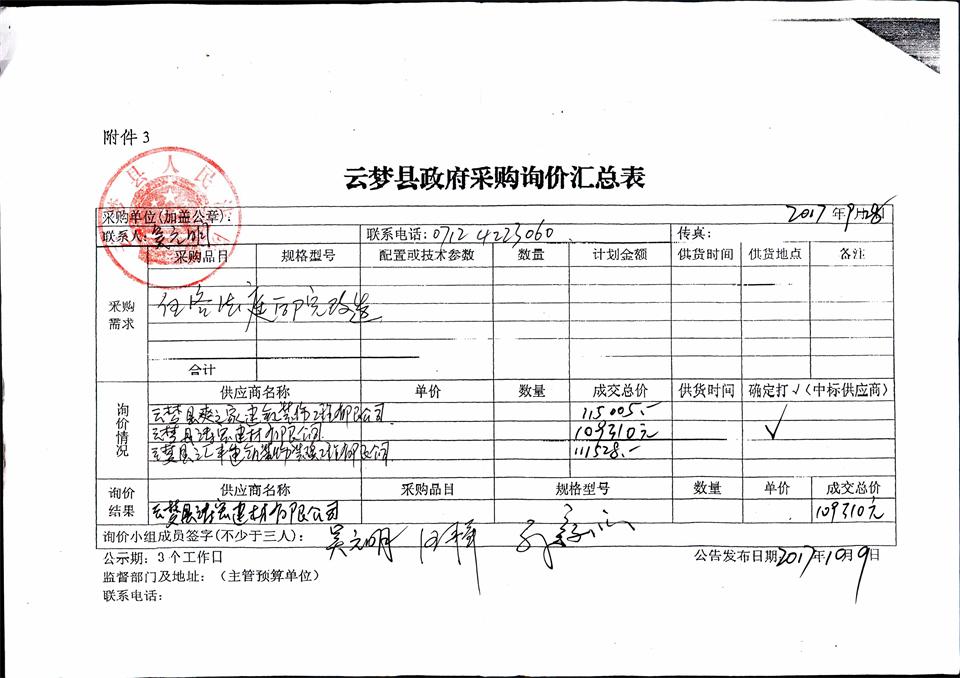 附件 3
云梦县政府采购询价汇总表
2017 年 9月28日
采购单位(加盖公章):
联系人: 吴元明 联系电话: 0712 4223060 传真:
采购品目 规格型号 配置或技术参数 数量 计划金额 供货时间 供货地点 备注
采购需求
法庭 院改造
合计
询价情况
供应商名称 单价 数量 成交总价 供货时间 确定打√(中标供应商)
云梦县 之家建筑装饰工程有限公司 115005.-
云梦县 建材有限公司 109310元 √
云梦县汇丰建筑装饰装璜工程有限公司 111528.-
询价结果
供应商名称 采购品目 规格型号 数量 单价 成交总价
云梦县 建材有限公司 109310元
询价小组成员签字(不少于三人): 吴元明
公示期: 3 个工作日 公告发布日期2017年10月9日
监督部门及地址: (主管预算单位)
联系电话: